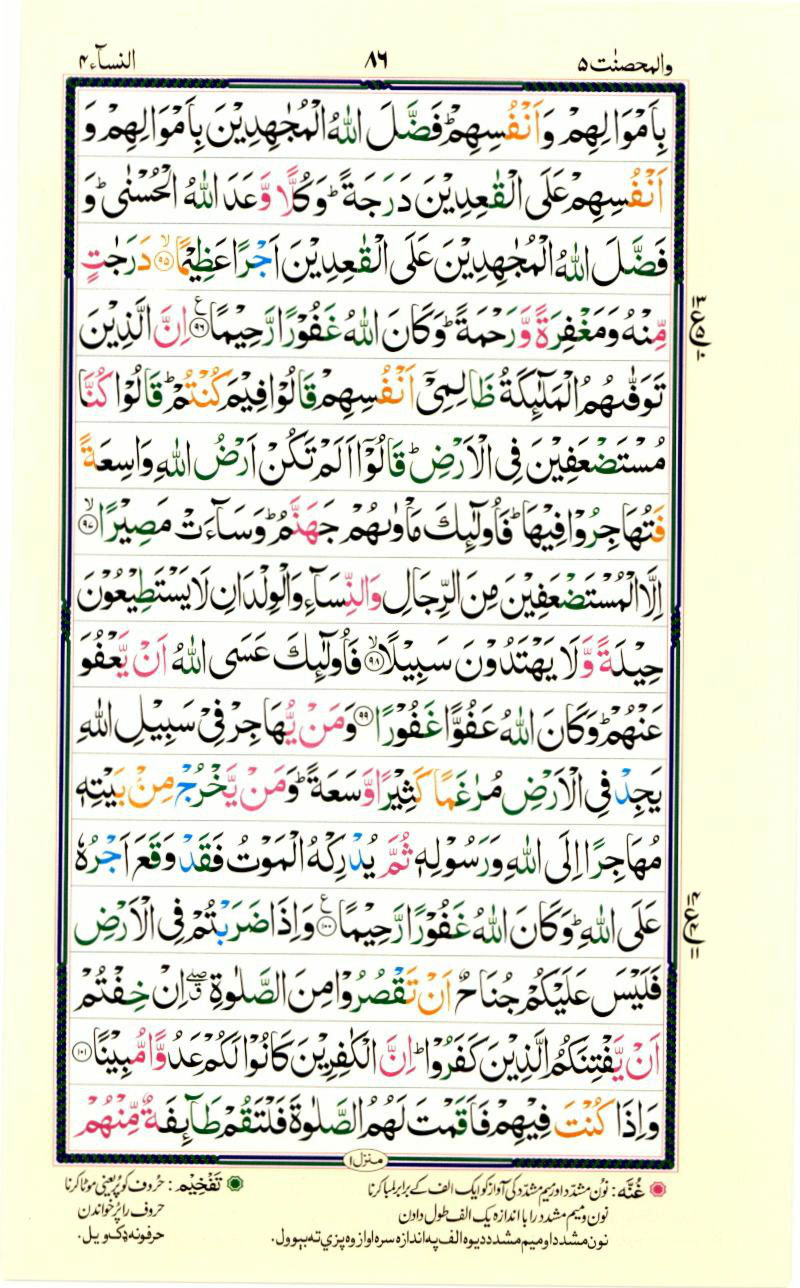 والمحصنٰت ۵
۸۶
النسآء ۴
بِاَمْوَالِهِمْ وَاَنْفُسِهِمْ ؕ فَضَّلَ اللّٰهُ الْمُجٰهِدِيْنَ بِاَمْوَالِهِمْ وَ
اَنْفُسِهِمْ عَلَى الْقٰعِدِيْنَ دَرَجَةً ؕ وَكُلًّا وَّعَدَ اللّٰهُ الْحُسْنٰى ؕ وَ
فَضَّلَ اللّٰهُ الْمُجٰهِدِيْنَ عَلَى الْقٰعِدِيْنَ اَجْرًا عَظِيْمًا ۙ﴿۹۵﴾ دَرَجٰتٍ
مِّنْهُ وَمَغْفِرَةً وَّرَحْمَةً ؕ وَكَانَ اللّٰهُ غَفُوْرًا رَّحِيْمًا ﴿۹۶﴾ ع اِنَّ الَّذِيْنَ
تَوَفّٰىهُمُ الْمَلٰٓئِكَةُ ظَالِمِيْٓ اَنْفُسِهِمْ قَالُوْا فِيْمَ كُنْتُمْ ؕ قَالُوْا كُنَّا
مُسْتَضْعَفِيْنَ فِى الْاَرْضِ ؕ قَالُوْٓا اَلَمْ تَكُنْ اَرْضُ اللّٰهِ وَاسِعَةً
فَتُهَاجِرُوْا فِيْهَا ؕ فَاُولٰٓئِكَ مَاْوٰىهُمْ جَهَنَّمُ ؕ وَسَآءَتْ مَصِيْرًا ۙ﴿۹۷﴾
اِلَّا الْمُسْتَضْعَفِيْنَ مِنَ الرِّجَالِ وَالنِّسَآءِ وَالْوِلْدَانِ لَا يَسْتَطِيْعُوْنَ
حِيْلَةً وَّلَا يَهْتَدُوْنَ سَبِيْلًا ۙ﴿۹۸﴾ فَاُولٰٓئِكَ عَسَى اللّٰهُ اَنْ يَّعْفُوَ
عَنْهُمْ ؕ وَكَانَ اللّٰهُ عَفُوًّا غَفُوْرًا ﴿۹۹﴾ وَمَنْ يُّهَاجِرْ فِيْ سَبِيْلِ اللّٰهِ
يَجِدْ فِى الْاَرْضِ مُرٰغَمًا كَثِيْرًا وَّسَعَةً ؕ وَمَنْ يَّخْرُجْ مِنْۢ بَيْتِهٖ
مُهَاجِرًا اِلَى اللّٰهِ وَرَسُوْلِهٖ ثُمَّ يُدْرِكْهُ الْمَوْتُ فَقَدْ وَقَعَ اَجْرُهٗ
عَلَى اللّٰهِ ؕ وَكَانَ اللّٰهُ غَفُوْرًا رَّحِيْمًا ﴿۱۰۰﴾ ع وَاِذَا ضَرَبْتُمْ فِى الْاَرْضِ
فَلَيْسَ عَلَيْكُمْ جُنَاحٌ اَنْ تَقْصُرُوْا مِنَ الصَّلٰوةِ ۖق اِنْ خِفْتُمْ
اَنْ يَّفْتِنَكُمُ الَّذِيْنَ كَفَرُوْا ؕ اِنَّ الْكٰفِرِيْنَ كَانُوْا لَكُمْ عَدُوًّا مُّبِيْنًا ﴿۱۰۱﴾
وَاِذَا كُنْتَ فِيْهِمْ فَاَقَمْتَ لَهُمُ الصَّلٰوةَ فَلْتَقُمْ طَآئِفَةٌ مِّنْهُمْ
منزل ۱
غُنَّه: نون مشدد اور میم مشدد کی آواز کو ایک الف کے برابر لمبا کرنا
نون و میم مشدد را با اندازه یک الف طول دادن
نون مشدد او میم مشدد دیوه الف په اندازه سره اواز وه پزې ته بیوول.
تَفْخِيْم: حروف کو پُر یعنی موٹا کرنا
حروف را پُر خواندن
حرفونه ډک ویل.